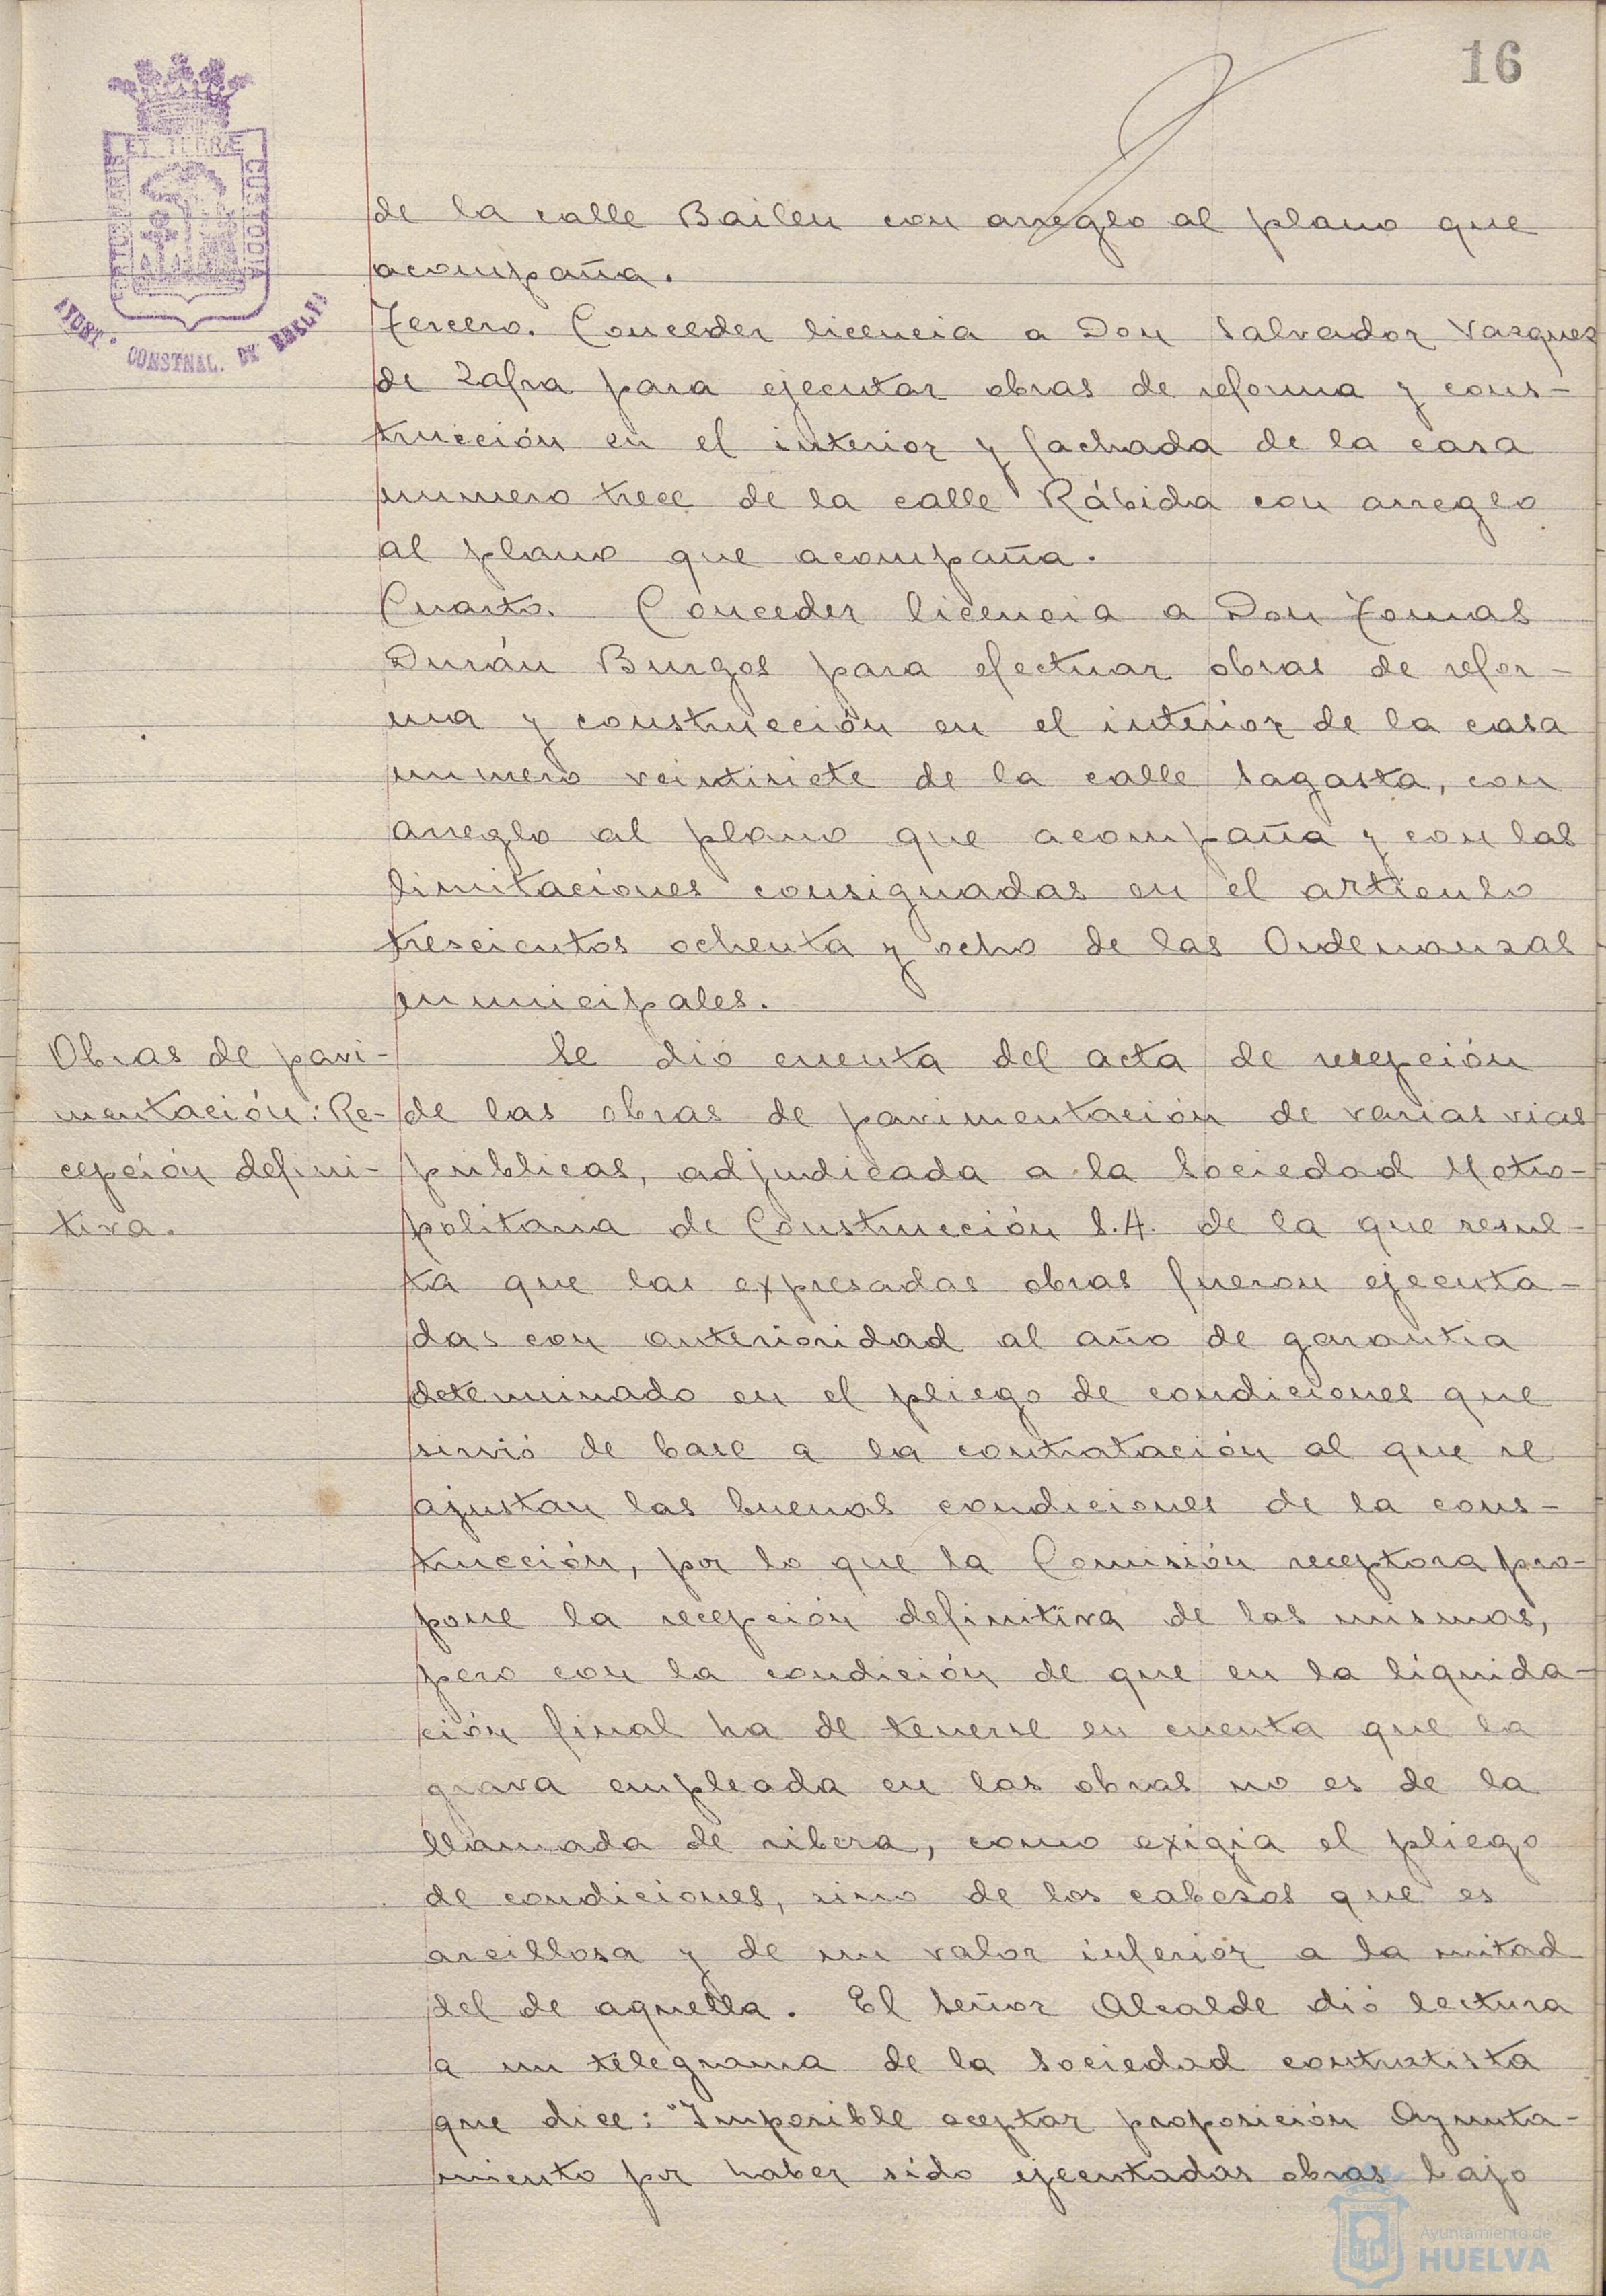 16
PORTUS MARIS
ET TERRÆ
CUSTODIA
AYUNT. CONSTNAL. DE HUELVA
de la calle Bailen con arreglo al plano que
acompaña.
Tercero. Conceder licencia a Don Salvador Vazquez
de Zafra para ejecutar obras de reforma y cons-
trucción en el interior y fachada de la casa
numero trece de la calle Rábida con arreglo
al plano que acompaña.
Cuarto. Conceder licencia a Don Tomas
Durán Burgos para efectuar obras de refor-
ma y construcción en el interior de la casa
numero veintisiete de la calle Sagasta, con
arreglo al plano que acompaña y con las
limitaciones consignadas en el articulo
trescientos ochenta y ocho de las Ordenanzas
municipales.
Obras de pavi-
mentación: Re-
cepción defini-
tiva.
Se dió cuenta del acta de recepción
de las obras de pavimentación de varias vias
publicas, adjudicada a la Sociedad Metro-
politana de Construcción S.A. de la que resul-
ta que las expresadas obras fueron ejecuta-
das con anterioridad al año de garantia
determinado en el pliego de condiciones que
sirvió de base a la contratación al que se
ajustan las buenas condiciones de la cons-
trucción, por lo que la Comisión receptora pro-
pone la recepción definitiva de las mismas,
pero con la condición de que en la liquida-
ción final ha de tenerse en cuenta que la
grava empleada en las obras no es de la
llamada de ribera, como exigia el pliego
de condiciones, sino de los cabezos que es
arcillosa y de un valor inferior a la mitad
del de aquella. El Señor Alcalde dió lectura
a un telegrama de la Sociedad contratista
que dice: "Imposible aceptar proposición Ayunta-
miento por haber sido ejecutadas obras bajo
Ayuntamiento de
HUELVA